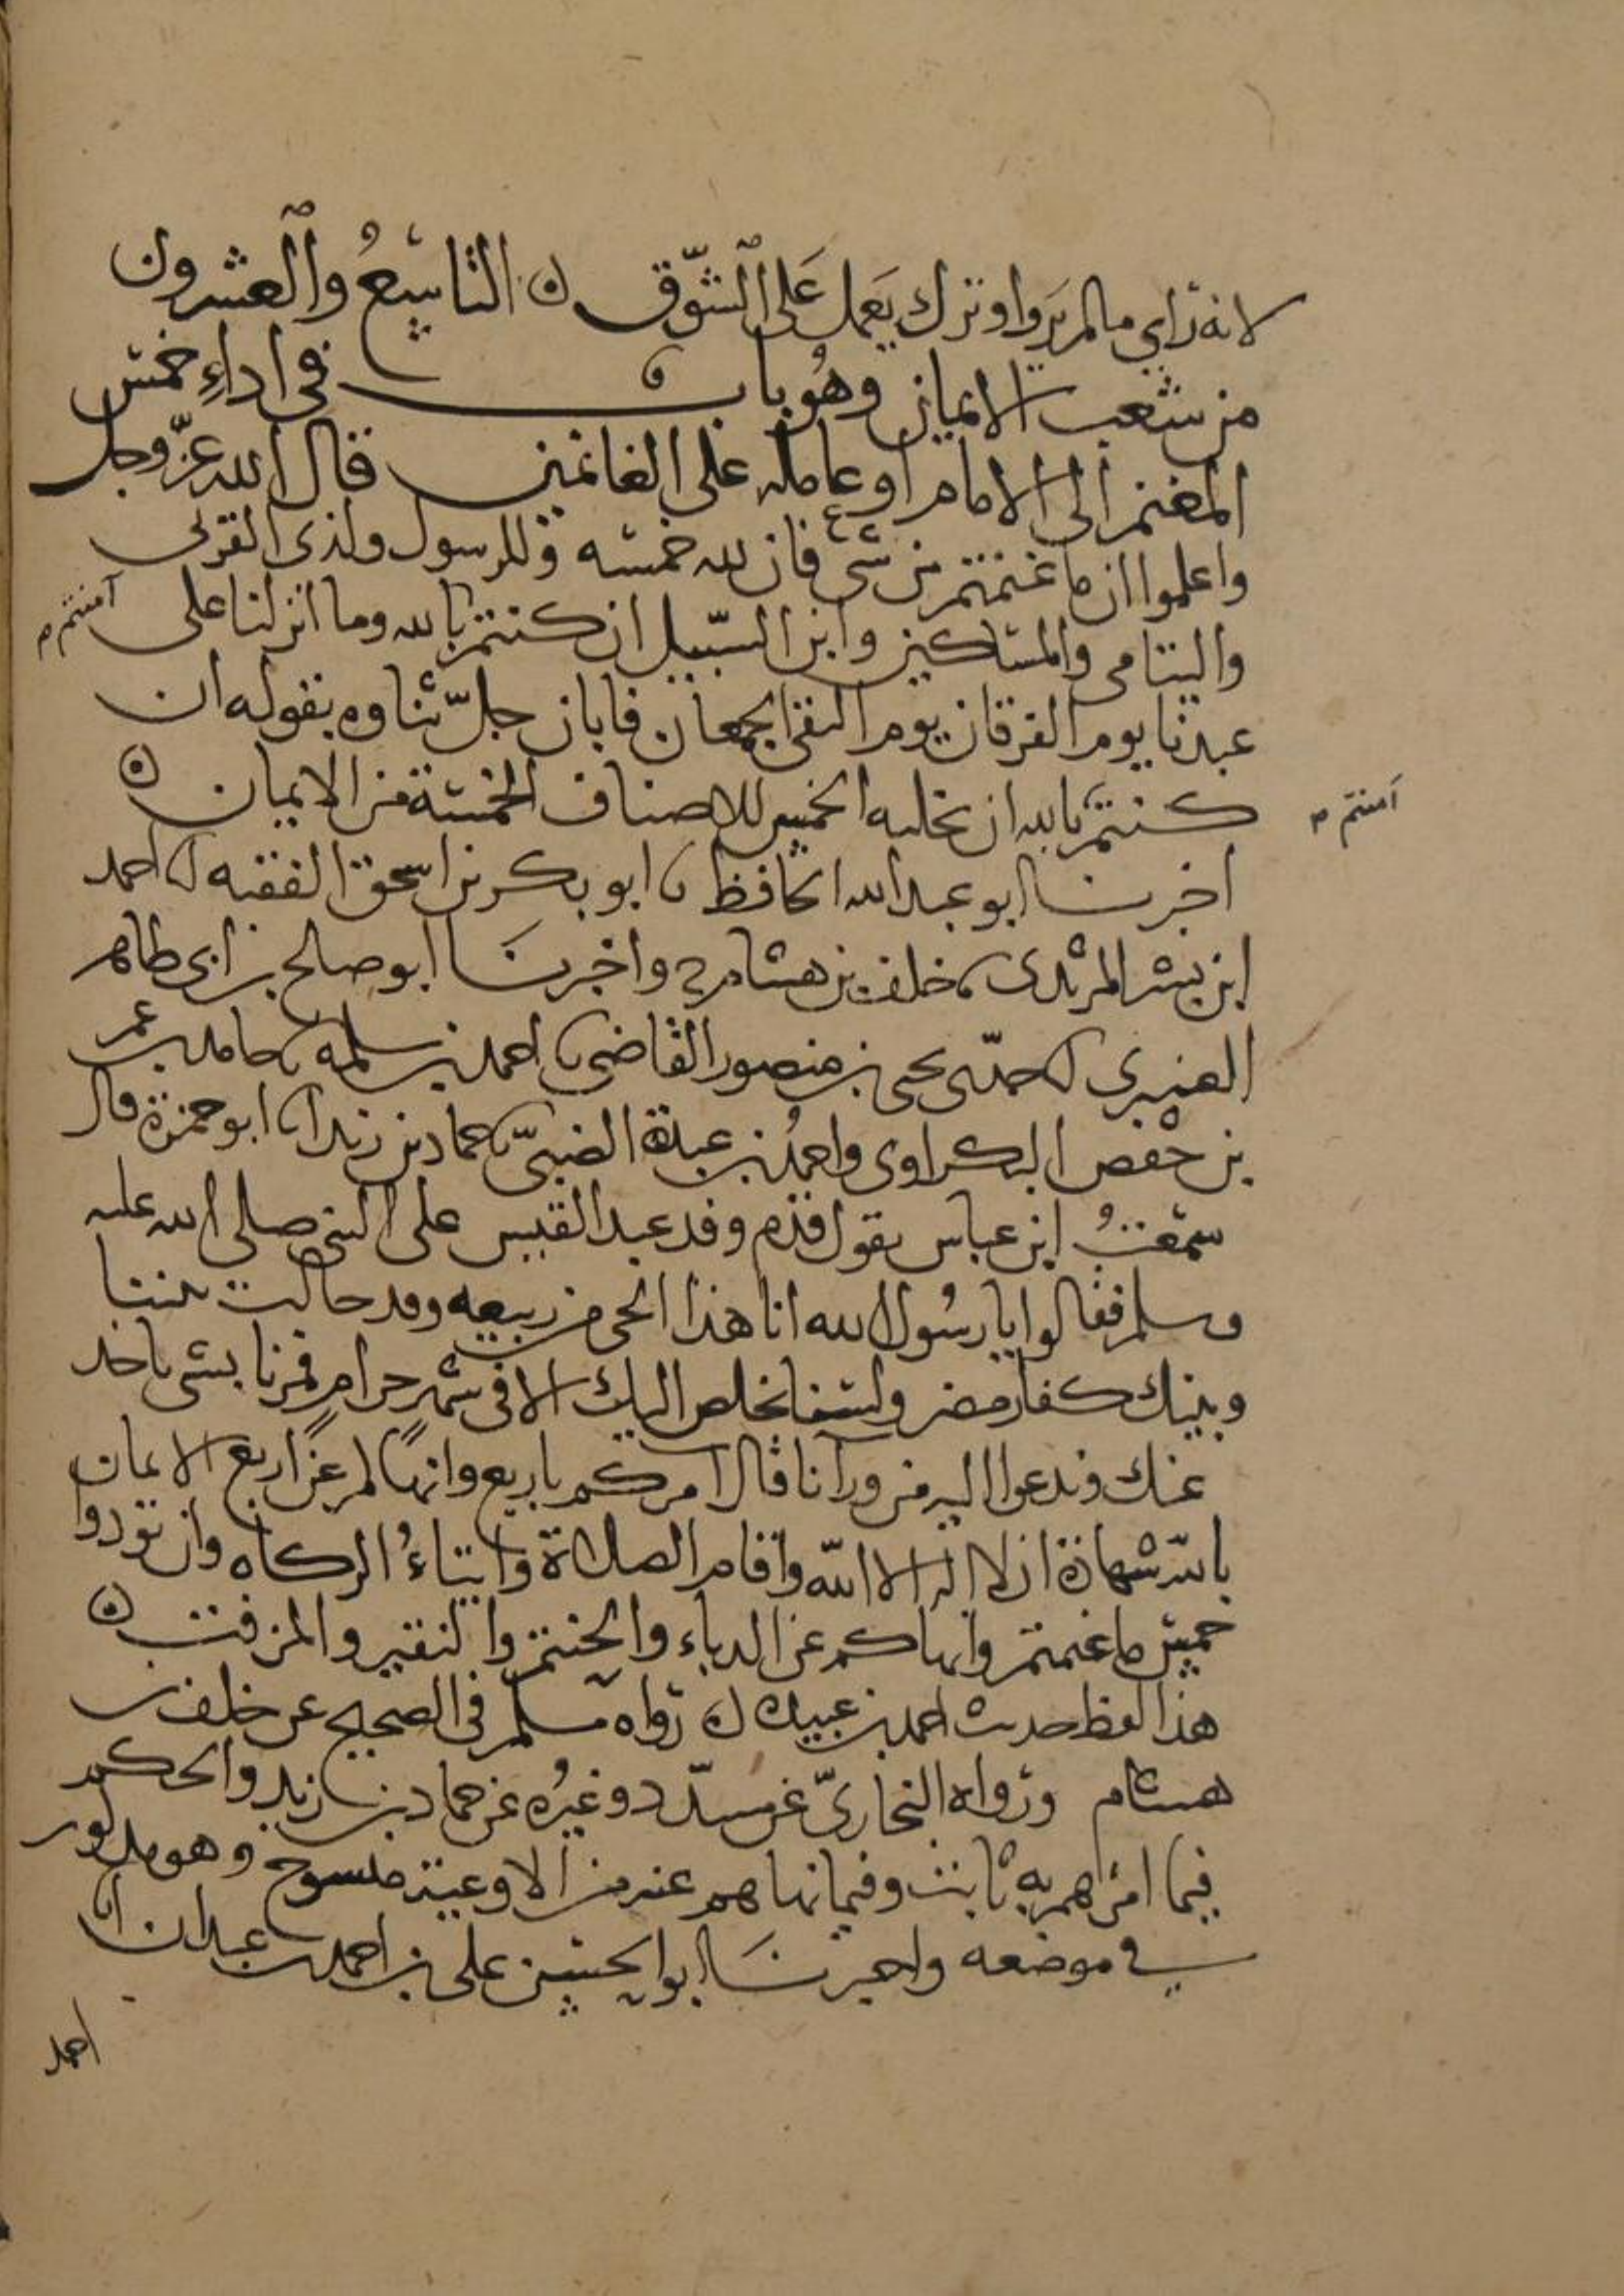 لانه راي مالم يروا وترك يعمل على الشوق ن التاسع والعشرون
من شعب الايمان وهو باب في اداء خمس
المغنم الى الامام او عامله على الغانمين قال الله عز وجل
واعلموا ان ما غنمتم من شيء فان لله خمسه وللرسول ولذي القربى
واليتامى والمساكين وابن السبيل ان كنتم بالله وما انزلنا على
آمنتم م
عبدنا يوم الفرقان يوم التقى الجمعان فابان جل ثناوه بقوله ان
كنتم بالله ان تخليه الخمس للاصناف الخمسة من الايمان ن
آمنتم م
اخبرنا ابو عبد الله الحافظ نا ابو بكر بن اسحق الفقيه انا احمد
ابن بشر المرثدي نا خلف بن هشام ح واخبرنا ابو صالح بن ابي طاهر
العنبري انا جدي يحيى بن منصور القاضي نا احمد بن سلمه نا حامد بن عمر
بن حفص البكراوي واحمد بن عبدة الضبي نا حماد بن زيد انا ابو حمزة قال
سمعت ابن عباس يقول قدم وفد عبد القيس على النبي صلى الله عليه
وسلم فقالوا يا رسول الله انا هذا الحي من ربيعه وقد حالت بيننا
وبينك كفار مضر ولسنا نخلص اليك الا في شهر حرام فمرنا بشي ناخذ
عنك وندعوا اليه من ورآنا قال آمركم باربع وانهاكم عن اربع الايمان
بالله شهادة ان لا اله الا الله واقام الصلاة وايتاء الزكاه وان تودوا
خمس ما غنمتم وانهاكم عن الدباء والحنتم والنقير والمزفت ن
هذا لفظ حديث احمد بن عبيدة ن رواه مسلم في الصحيح عن خلف بن
هشام ورواه البخاري عن مسدد وغيره عن حماد بن زيد والحكم
فيما امرهم به ثابت وفيما نهاهم عنه من الاوعية منسوخ وهو مذكور
في موضعه واخبرنا ابو الحسين علي بن احمد بن عبدان انا
احمد